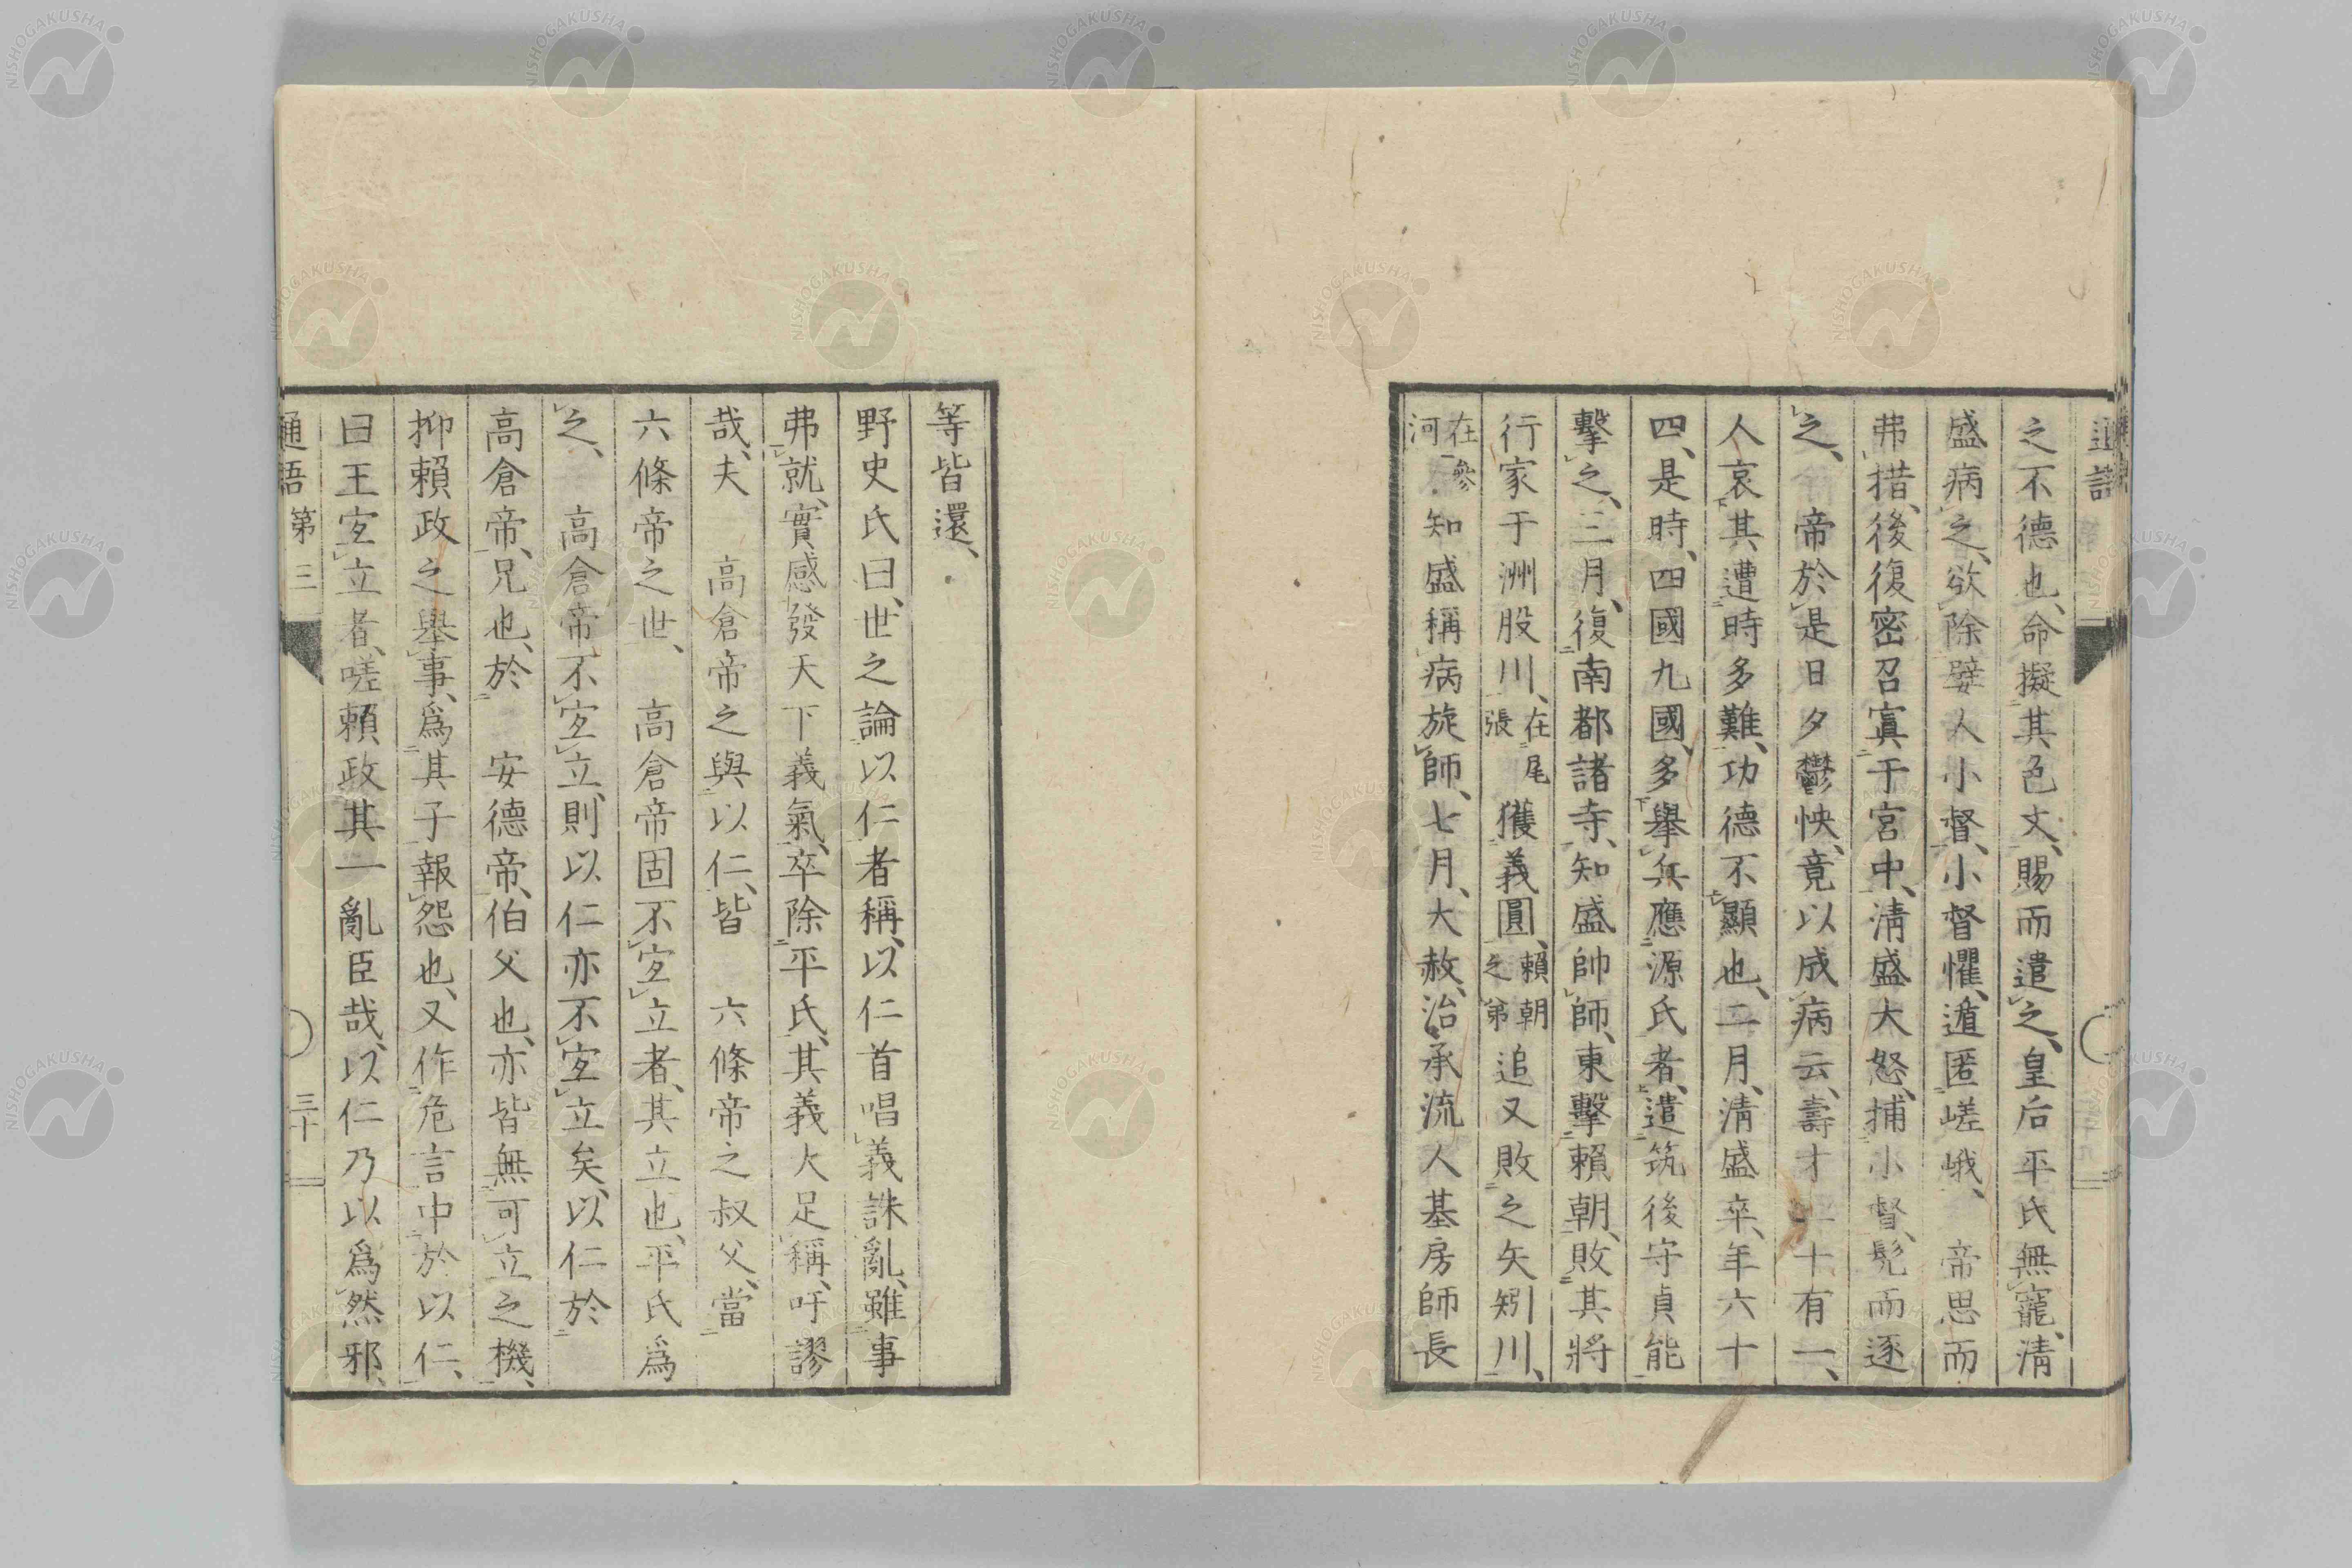 之不德也、命擬其色丈、賜而遣之、皇后平氏無寵、清
盛病之、欲除嬖人小督、小督懼、遁匿嵯峨、　帝思而
弗措、後復密召寘于宮中、清盛大怒、捕小督、髡而逐
之、　帝於是日夕鬱怏、竟以成病云、壽才二十有一、
人哀其遭時多難、功德不顯也、二月、清盛卒、年六十
四、是時、四國九國、多舉兵應源氏者、遣筑後守貞能
擊之、三月、復南都諸寺、知盛帥師、東擊賴朝、敗其將
行家于洲股川、在尾張獲義圓、賴朝之弟追又敗之矢矧川、
在參河知盛稱病旋師、七月、大赦、治承流人基房師長
等皆還、
野史氏曰、世之論以仁者稱、以仁首唱義誅亂、雖事
弗就、實感發天下義氣、卒除平氏、其義大足稱、吁謬
哉、夫　高倉帝之與以仁、皆　六條帝之叔父、當
六條帝之世、　高倉帝固不宜立者、其立也、平氏爲
之、　高倉帝不宜立、則以仁亦不宜立矣、以仁於
高倉帝、兄也、於　安德帝、伯父也、亦皆無可立之機、
抑賴政之舉事、爲其子報怨也、又作危言中於以仁、
曰王宜立者、嗟賴政其一亂臣哉、以仁乃以爲然邪、
通語第三　三十
NISHOGAKUSHA